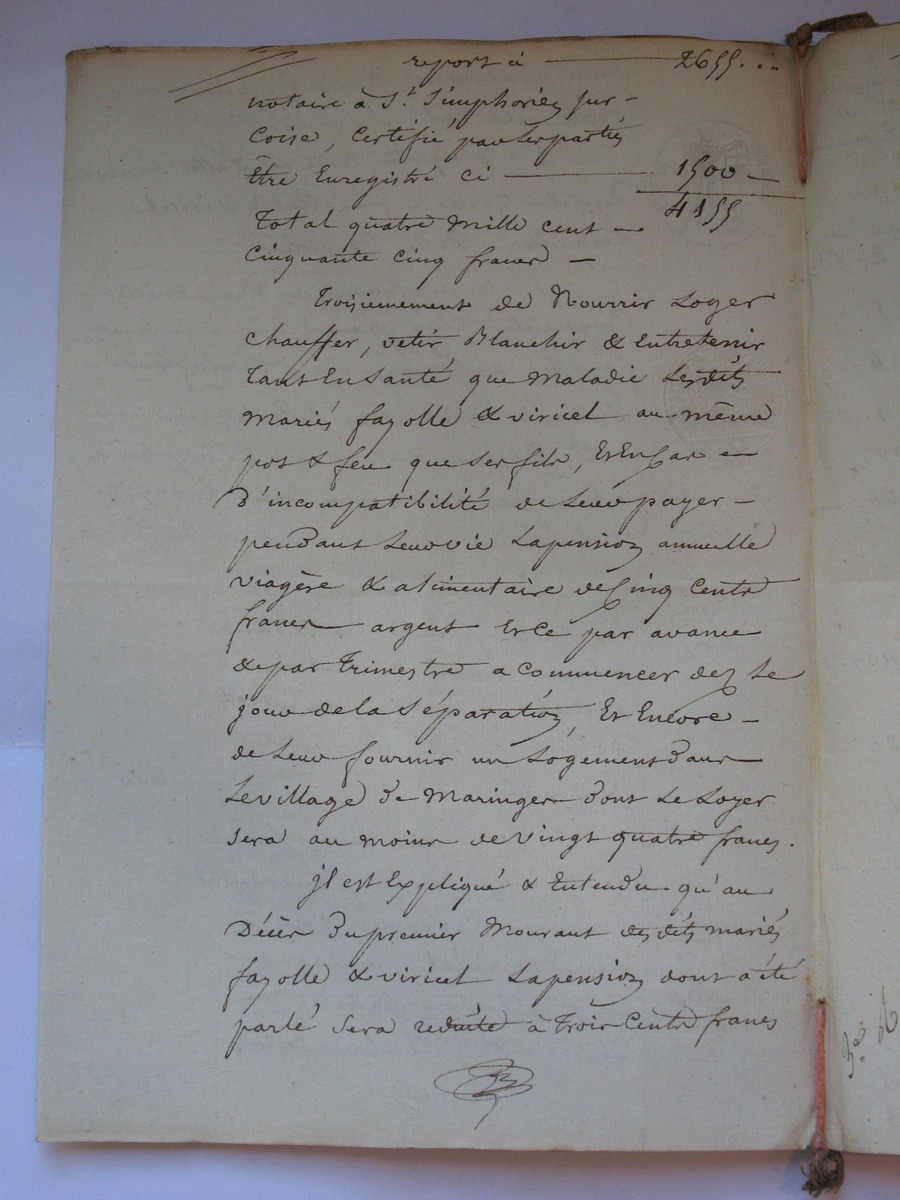 report ci — 2655...
notaire à St. Simphorien sur-
Coise, Certifié par ses parties
Être Enregistré ci — 1500 —
4155
Total quatre mille cent —
Cinquante Cinq francs —
Troisiemement de Nourrir Loger
chauffer, vetir Blanchir & Entretenir
Tant En Santé que Maladie Lesdits
Mariés fayolle & viricel au même
pot & feu que ses fils, Et En Cas —
D'incompatibilité de Leur payer —
pendant Leur vie La pension annuelle
viagère & alimentaire de Cinq Cents
francs argent Et Ce par avance
& par Trimestre a Commencer dez Le
jour de la Séparation, Et Encore —
de Leur fournir un Logement dans
Le village de Maringes dont Le Loyer
Sera au moins de Vingt quatre francs.
jl est Expliqué & Entendu qu'au
Décès du premier Mourant desdits mariés
fayolle & viricel La pension dont a été
parlé Sera reduite à Trois Cents francs